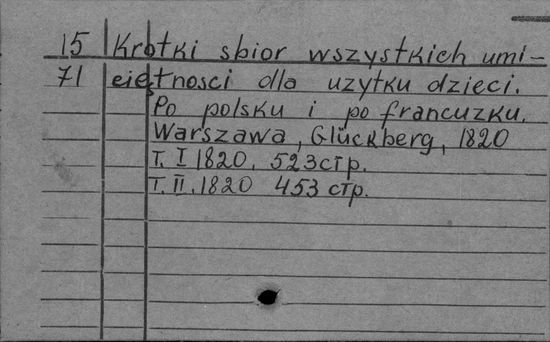 15 Krotki sbior wszystkich umi-
71 eiętnosci dla uzytku dzieci.
Po polsku i po francuzku.
Warszawa, Glückberg, 1820
T. I 1820. 523 стр.
T. II. 1820 453 стр.